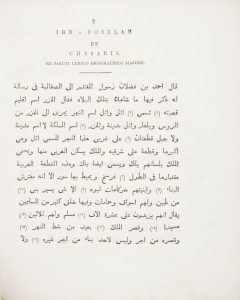 7
IBN-FOSZLAN
DE
CHASARIS,
EX JACUTI LEXICO GEOGRAPHICO MAJORI.
قال احمد بن فضلان رسول المقتدر الى الصقالبة فى رسالة
له ذكر فيها ما شاهده بتلك البلاد فقال الخزر اسم اقليم
قصبته تسمى اتل واتل اسم النهر يجرى الى من
الروس وبلغار واتل مدينة والخزر اسم المملكة لا اسم مدينة
واتل قطعتان على غربى هذا النهر المسمى اتل وهى
اكبرها وقطعة على شرقيه والملك يسكن الغربى منها ويسمى
الملك بلسانهم يلك ويسمى ايضا باك وهذه القطعة الغربية
مقدارها فى الطول فرسخ ويحيط بها سور الا انه مفترش
البناء وابنيتهم خركاهات لبود الا شى يسير بنى
من طين ولهم اسواق وحمامات وفيها خلق كثير من المسلمين
يقال انهم يزيدون على عشرة الاف مسلم ولهم ثلاثين
مسجدا وقصر الملك بعيد من شط النهر
وقصره من اجر وليس لاحد بناء من اجر غيره ولا